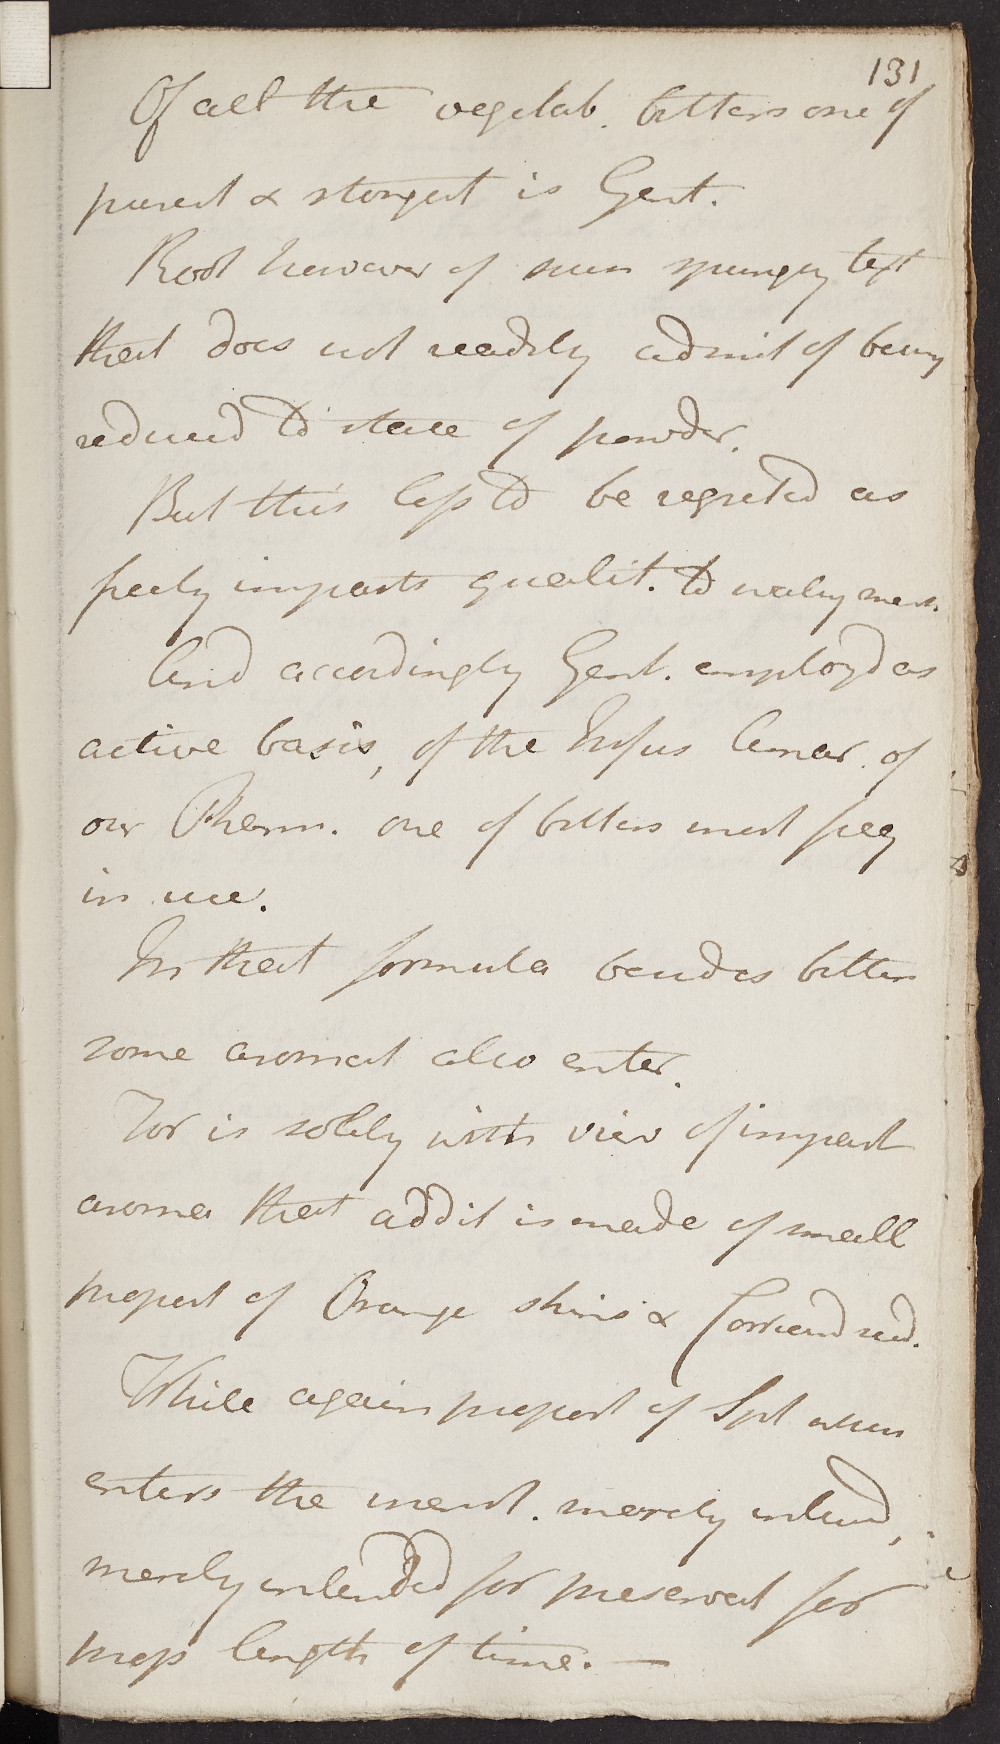 131
Of all the vegetab. bitters one of
purest & strongest is Gent.
Root however of spungy text
that does not readily admit of being
reduced to state of powder.
But this less to be regreted as
freely imparts qualit. to watery menst.
And accordingly Gent. employd as
active basis, of the Infus Amar. of
our Pharm. one of bitters most freq
in use.
In that formula besides bitter
some aromat also enter.
For is solely with view of impart
aroma that addit is made of small
proport of Orange skins & Coriand seed.
While again proport of Spt when
enters the menst. merely intend,
merely intended for preservat for
length of time. —